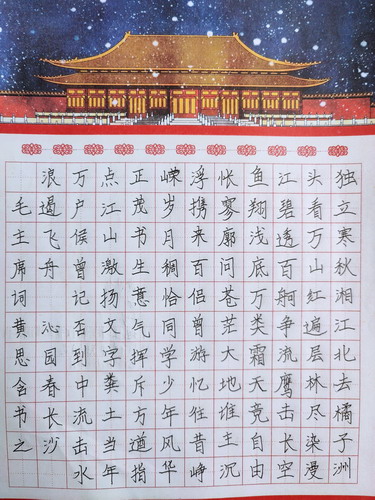 独立寒秋湘江北去橘子洲
头看万山红遍层林尽染漫
江碧透百舸争流鹰击长空
鱼翔浅底万类霜天竞自由
怅寥廓问苍茫大地谁主沉
浮携来百侣曾游忆往昔峥
嵘岁月稠恰同学少年风华
正茂书生意气挥斥方遒指
点江山激扬文字粪土当年
万户侯曾记否到中流击水
浪遏飞舟 沁园春长沙
毛主席词黄思含书之